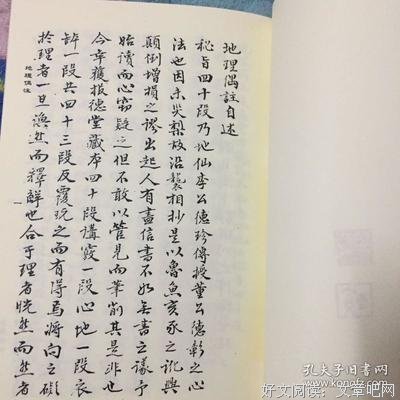 地理偶註自述
秘旨四十段乃地仙李公德珍傳授董公德彰之心
法也因未災梨故沿襲相抄是以魯魚亥豕之訛與
顛倒增損之謬出起人有盡信書不如無書之議予
始讀而心竊疑之但不敢以管見而筆削其是非也
今幸獲報德堂藏本四十段講竅一段心地一段衣
鉢一段共四十三段反覆玩之而有得焉將向之礙
於理者一旦渙然而釋辭也合于理者恍然而然者
地理偶註
一
孔夫子旧书网
好文阅读:文章吧网